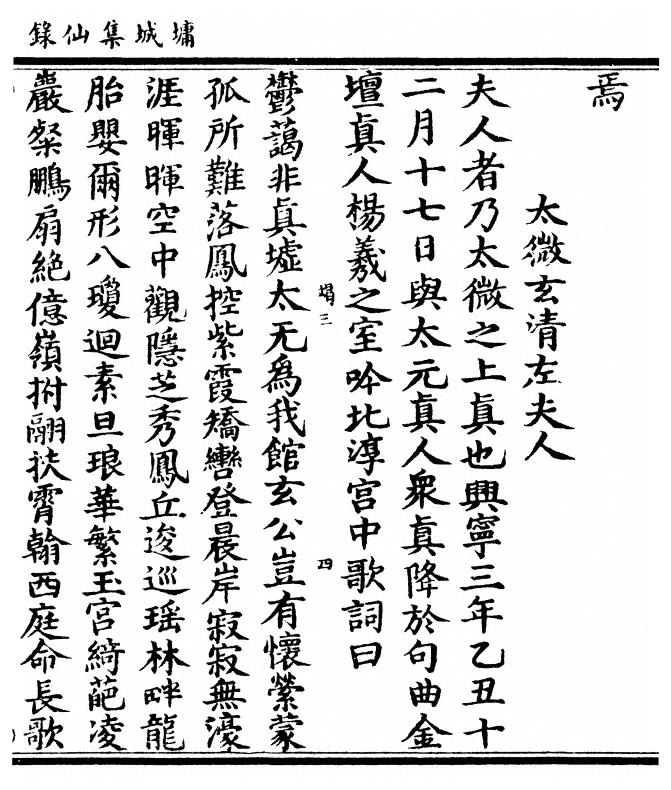 墉城集仙錄
焉
太微玄清左夫人
夫人者乃太微之上真也興寧三年乙丑十
二月十七日與太元真人衆真降於句曲金
壇真人楊羲之室吟北渟宮中歌詞曰
墉三
四
鬱藹非真墟太无為我館玄公豈有懷縈蒙
孤所難落鳳控紫霞矯轡登晨岸寂寂無濠
涯暉暉空中觀隱芝秀鳳丘逡巡瑶林畔龍
胎嬰爾形八瓊迴素旦琅華繁玉宮綺葩凌
巖粲鵬扇絶億嶺拊翮扶霄翰西庭命長歌